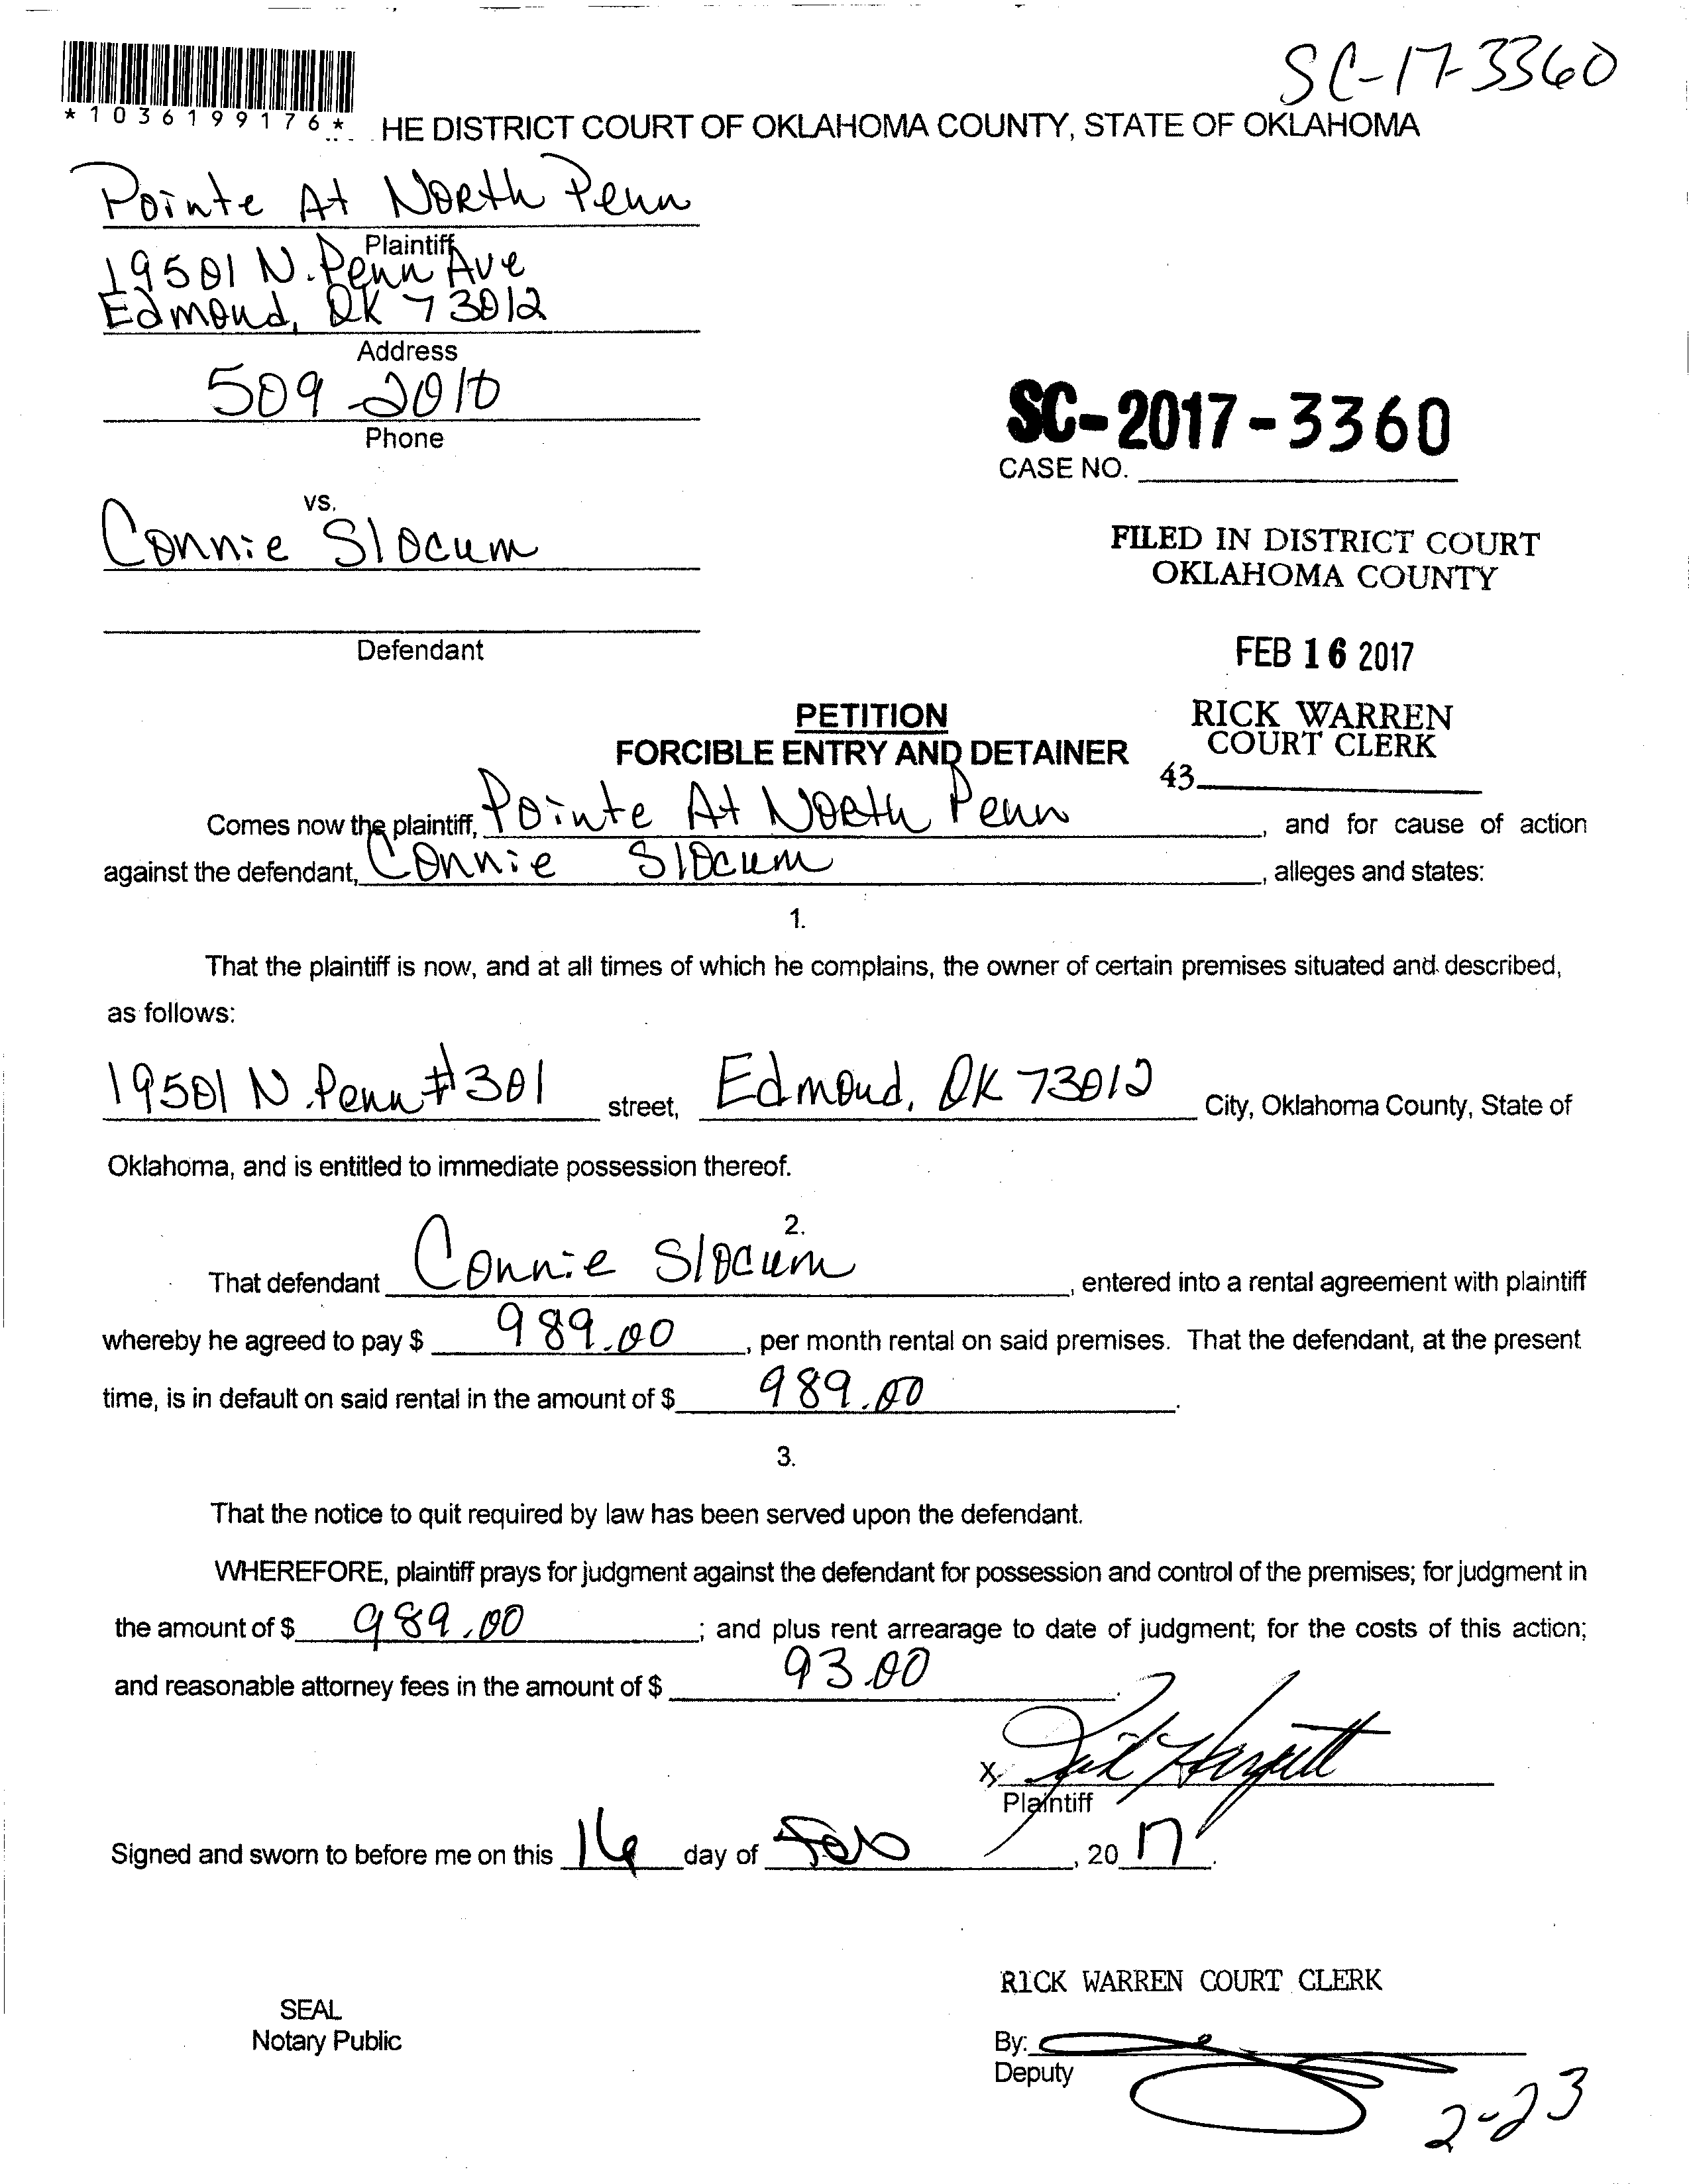 SC-17-3360
*1036199176*
HE DISTRICT COURT OF OKLAHOMA COUNTY, STATE OF OKLAHOMA
Pointe At North Penn
Plaintiff
19501 N. Penn Ave
Edmond, OK 73012
Address
509-2010
Phone
SC-2017-3360
CASE NO.
vs.
Connie Slocum
FILED IN DISTRICT COURT
OKLAHOMA COUNTY
Defendant
FEB 16 2017
PETITION
RICK WARREN
COURT CLERK
FORCIBLE ENTRY AND DETAINER
43
Comes now the plaintiff, Pointe At North Penn, and for cause of action
against the defendant, Connie Slocum, alleges and states:
1.
That the plaintiff is now, and at all times of which he complains, the owner of certain premises situated and described,
as follows:
19501 N. Penn #301 street, Edmond, OK 73012 City, Oklahoma County, State of
Oklahoma, and is entitled to immediate possession thereof.
2.
That defendant Connie Slocum, entered into a rental agreement with plaintiff
whereby he agreed to pay $ 989.00, per month rental on said premises. That the defendant, at the present
time, is in default on said rental in the amount of $ 989.00.
3.
That the notice to quit required by law has been served upon the defendant.
WHEREFORE, plaintiff prays for judgment against the defendant for possession and control of the premises; for judgment in
the amount of $ 989.00; and plus rent arrearage to date of judgment; for the costs of this action;
and reasonable attorney fees in the amount of $ 93.00.
X
Plaintiff
Signed and sworn to before me on this 16 day of Feb, 2017.
RICK WARREN COURT CLERK
SEAL
Notary Public
By:
Deputy
2-23